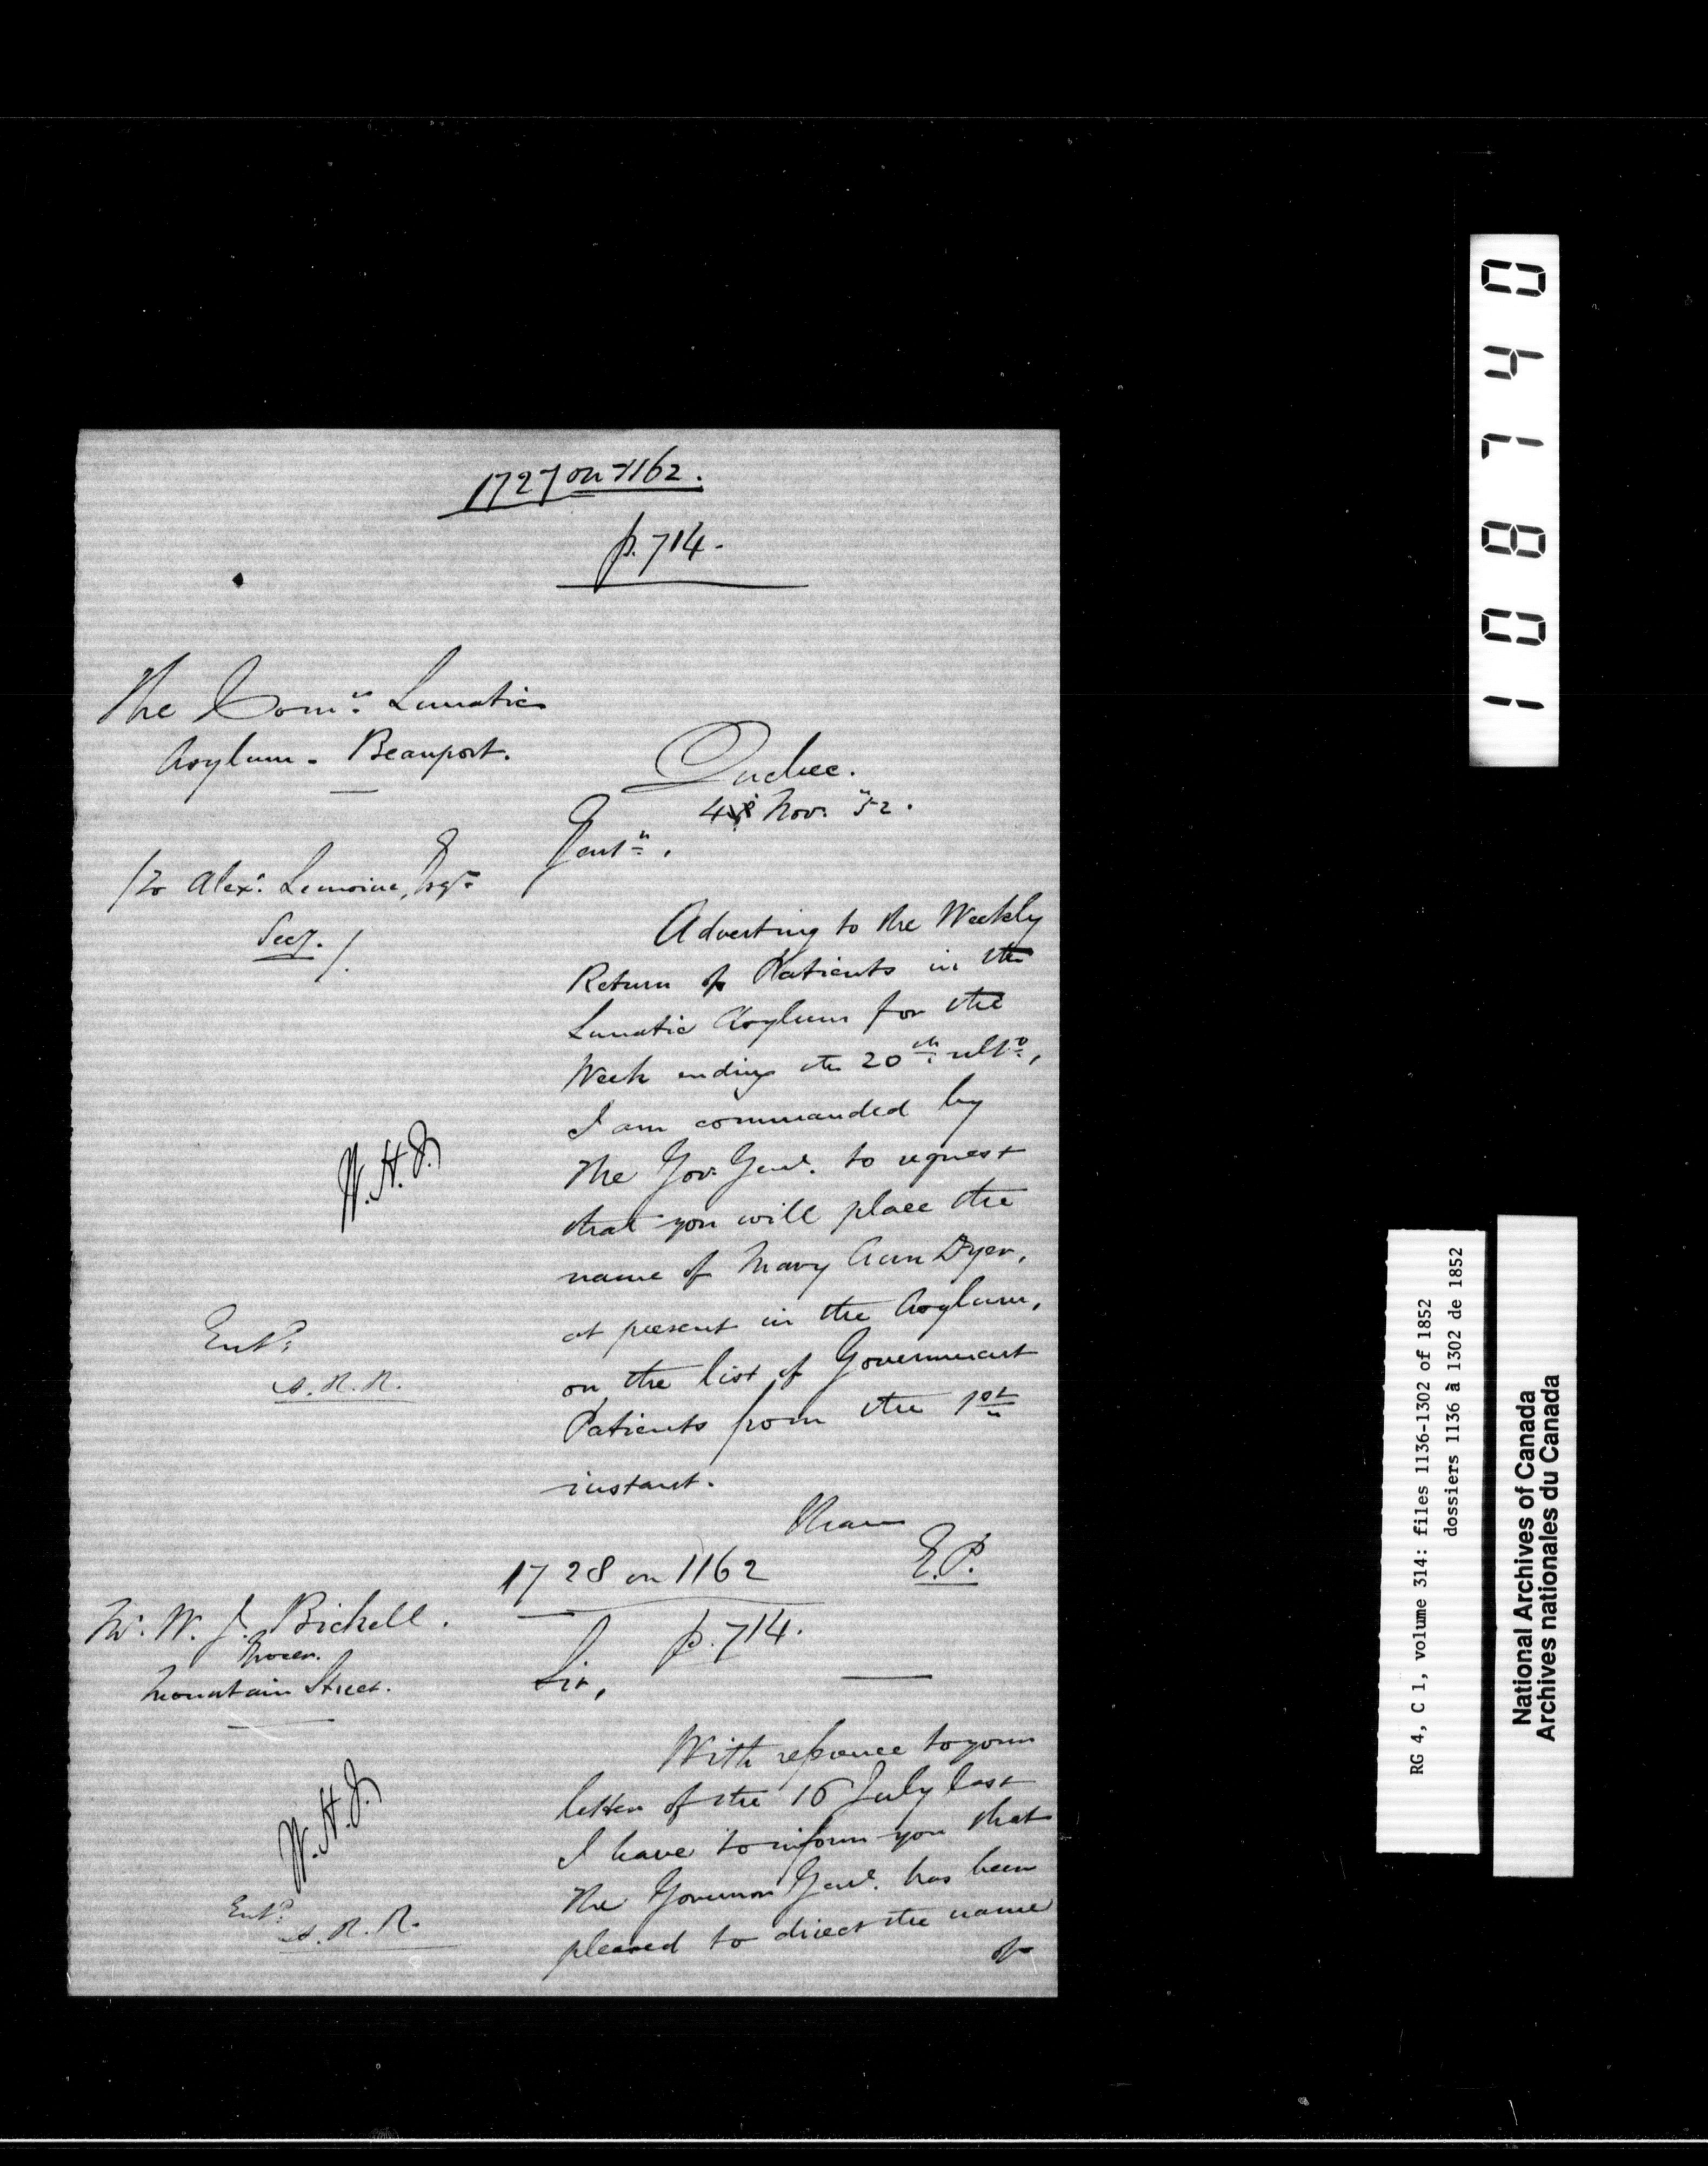 1727 on 1162.
p. 714.
The Comrs. Lunatic
Asylum - Beauport.
/To Alexr. Lemoine, Esqr.
Secy. /.
Quebec.
4 Nov. 52.
Gentn.,
Adverting to the Weekly
Return of Patients in the
Lunatic Asylum for the
Week ending the 20th ulto.,
I am commanded by
The Gov. Genl. to request
that you will place the
name of Mary Ann Dyer,
at present in the Asylum,
on the list of Government
Patients from the 1st
instant.
I have
E.P.
W.H.J.
Entd.
A.R.R.
1728 on 1162
p. 714.
Mr. W. J. Bickell.
Grocer.
Mountain Street.
Sir,
With reference to your
letter of the 16 July last
I have to inform you that
The Governor Genl. has been
pleased to direct the name
of
W.H.J.
Entd.
A.R.R.
108740
RG 4, C 1, volume 314: files 1136-1302 of 1852
dossiers 1136 à 1302 de 1852
National Archives of Canada
Archives nationales du Canada